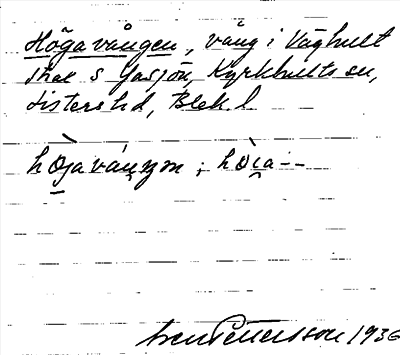 Högavången, vång i Vághult
s Gasjön, Kyrkhults sn,
Listers hd, Blek. l
högaváŋən ; hòia--
Sven Pettersson 1936